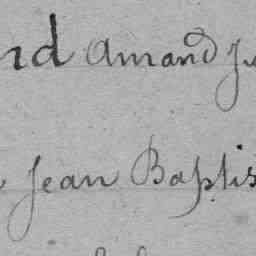 nd Amand Ju
Jean Baptis